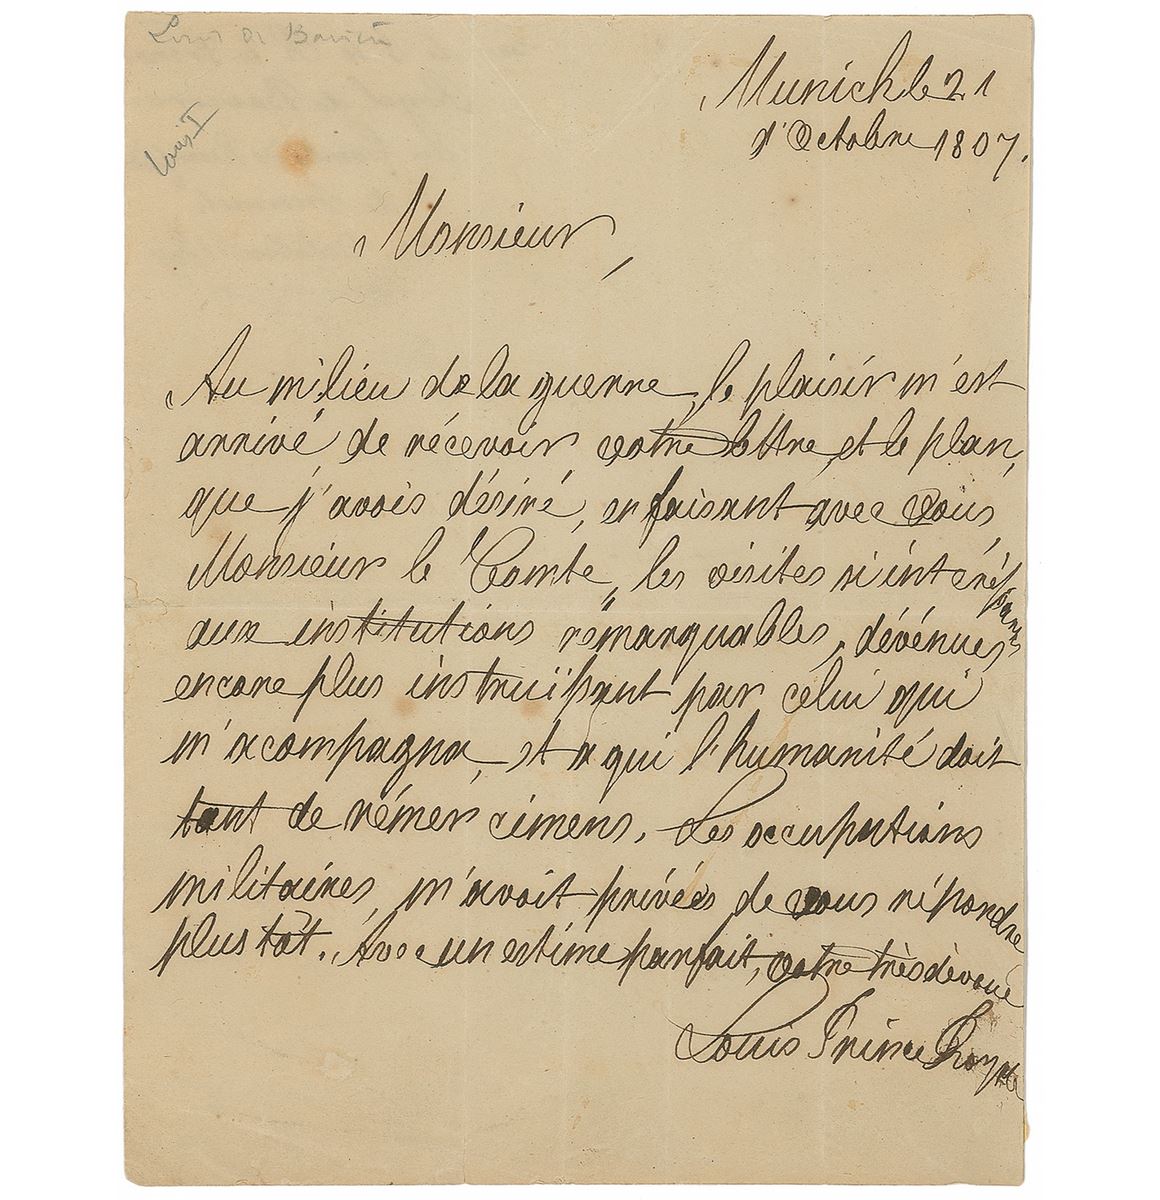 Louis de Bavière
Louis I
Munich le 21
d'Octobre 1807.
Monsieur,
Au milieu de la guerre, le plaisir m'est
arrivé de récevoir votre lettre, et le plan,
que j'avois désiré, en faisant avec vous,
Monsieur le Comte, les visites si intéréssantes
aux institutions rémarquables, dévénues
encore plus instruissant par celui qui
m'acompagna, et a qui l'humanité doit
tant de rémercimens. Les occupations
militaires m'avoit privées de vous répondre
plus tôt. Avec un estime parfait, votre très dévoué
Louis Prince Royal